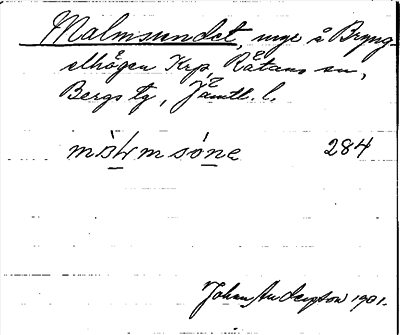 Malmsundet, mye å Bryng-
elhögen Krp, Rätans sn,
Bergs tg, Jämtl. l.
284
Johan Anderzson 1901.